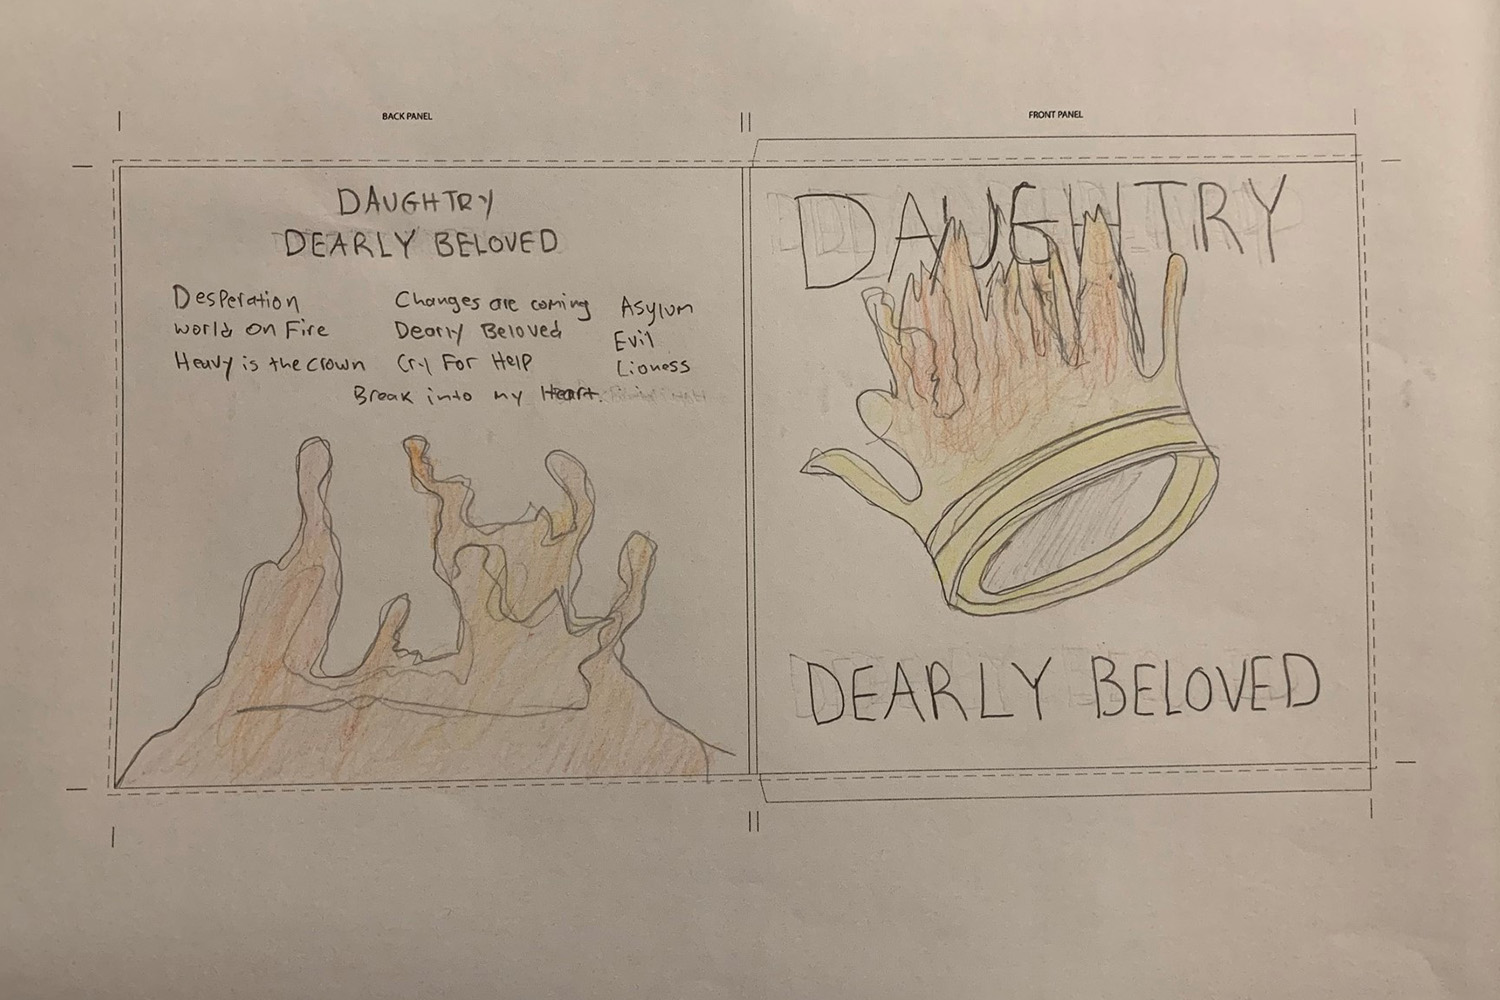 BACK PANEL
DAUGHTRY
DEARLY BELOVED
Desperation
World on Fire
Heavy is the crown
Changes are coming
Dearly Beloved
Cry For Help
Asylum
Evil
Lioness
Break into my Heart.
FRONT PANEL
DAUGHTRY
DEARLY BELOVED